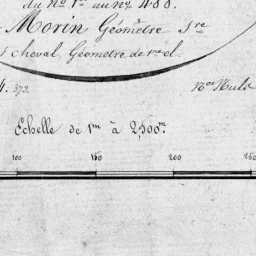 du nº 1er au nº 488.
Morin Géomètre
cheval, Géomètre de 1re cl.
4. 372
Echelle de 1m à 2,500m.
100 150 200 250